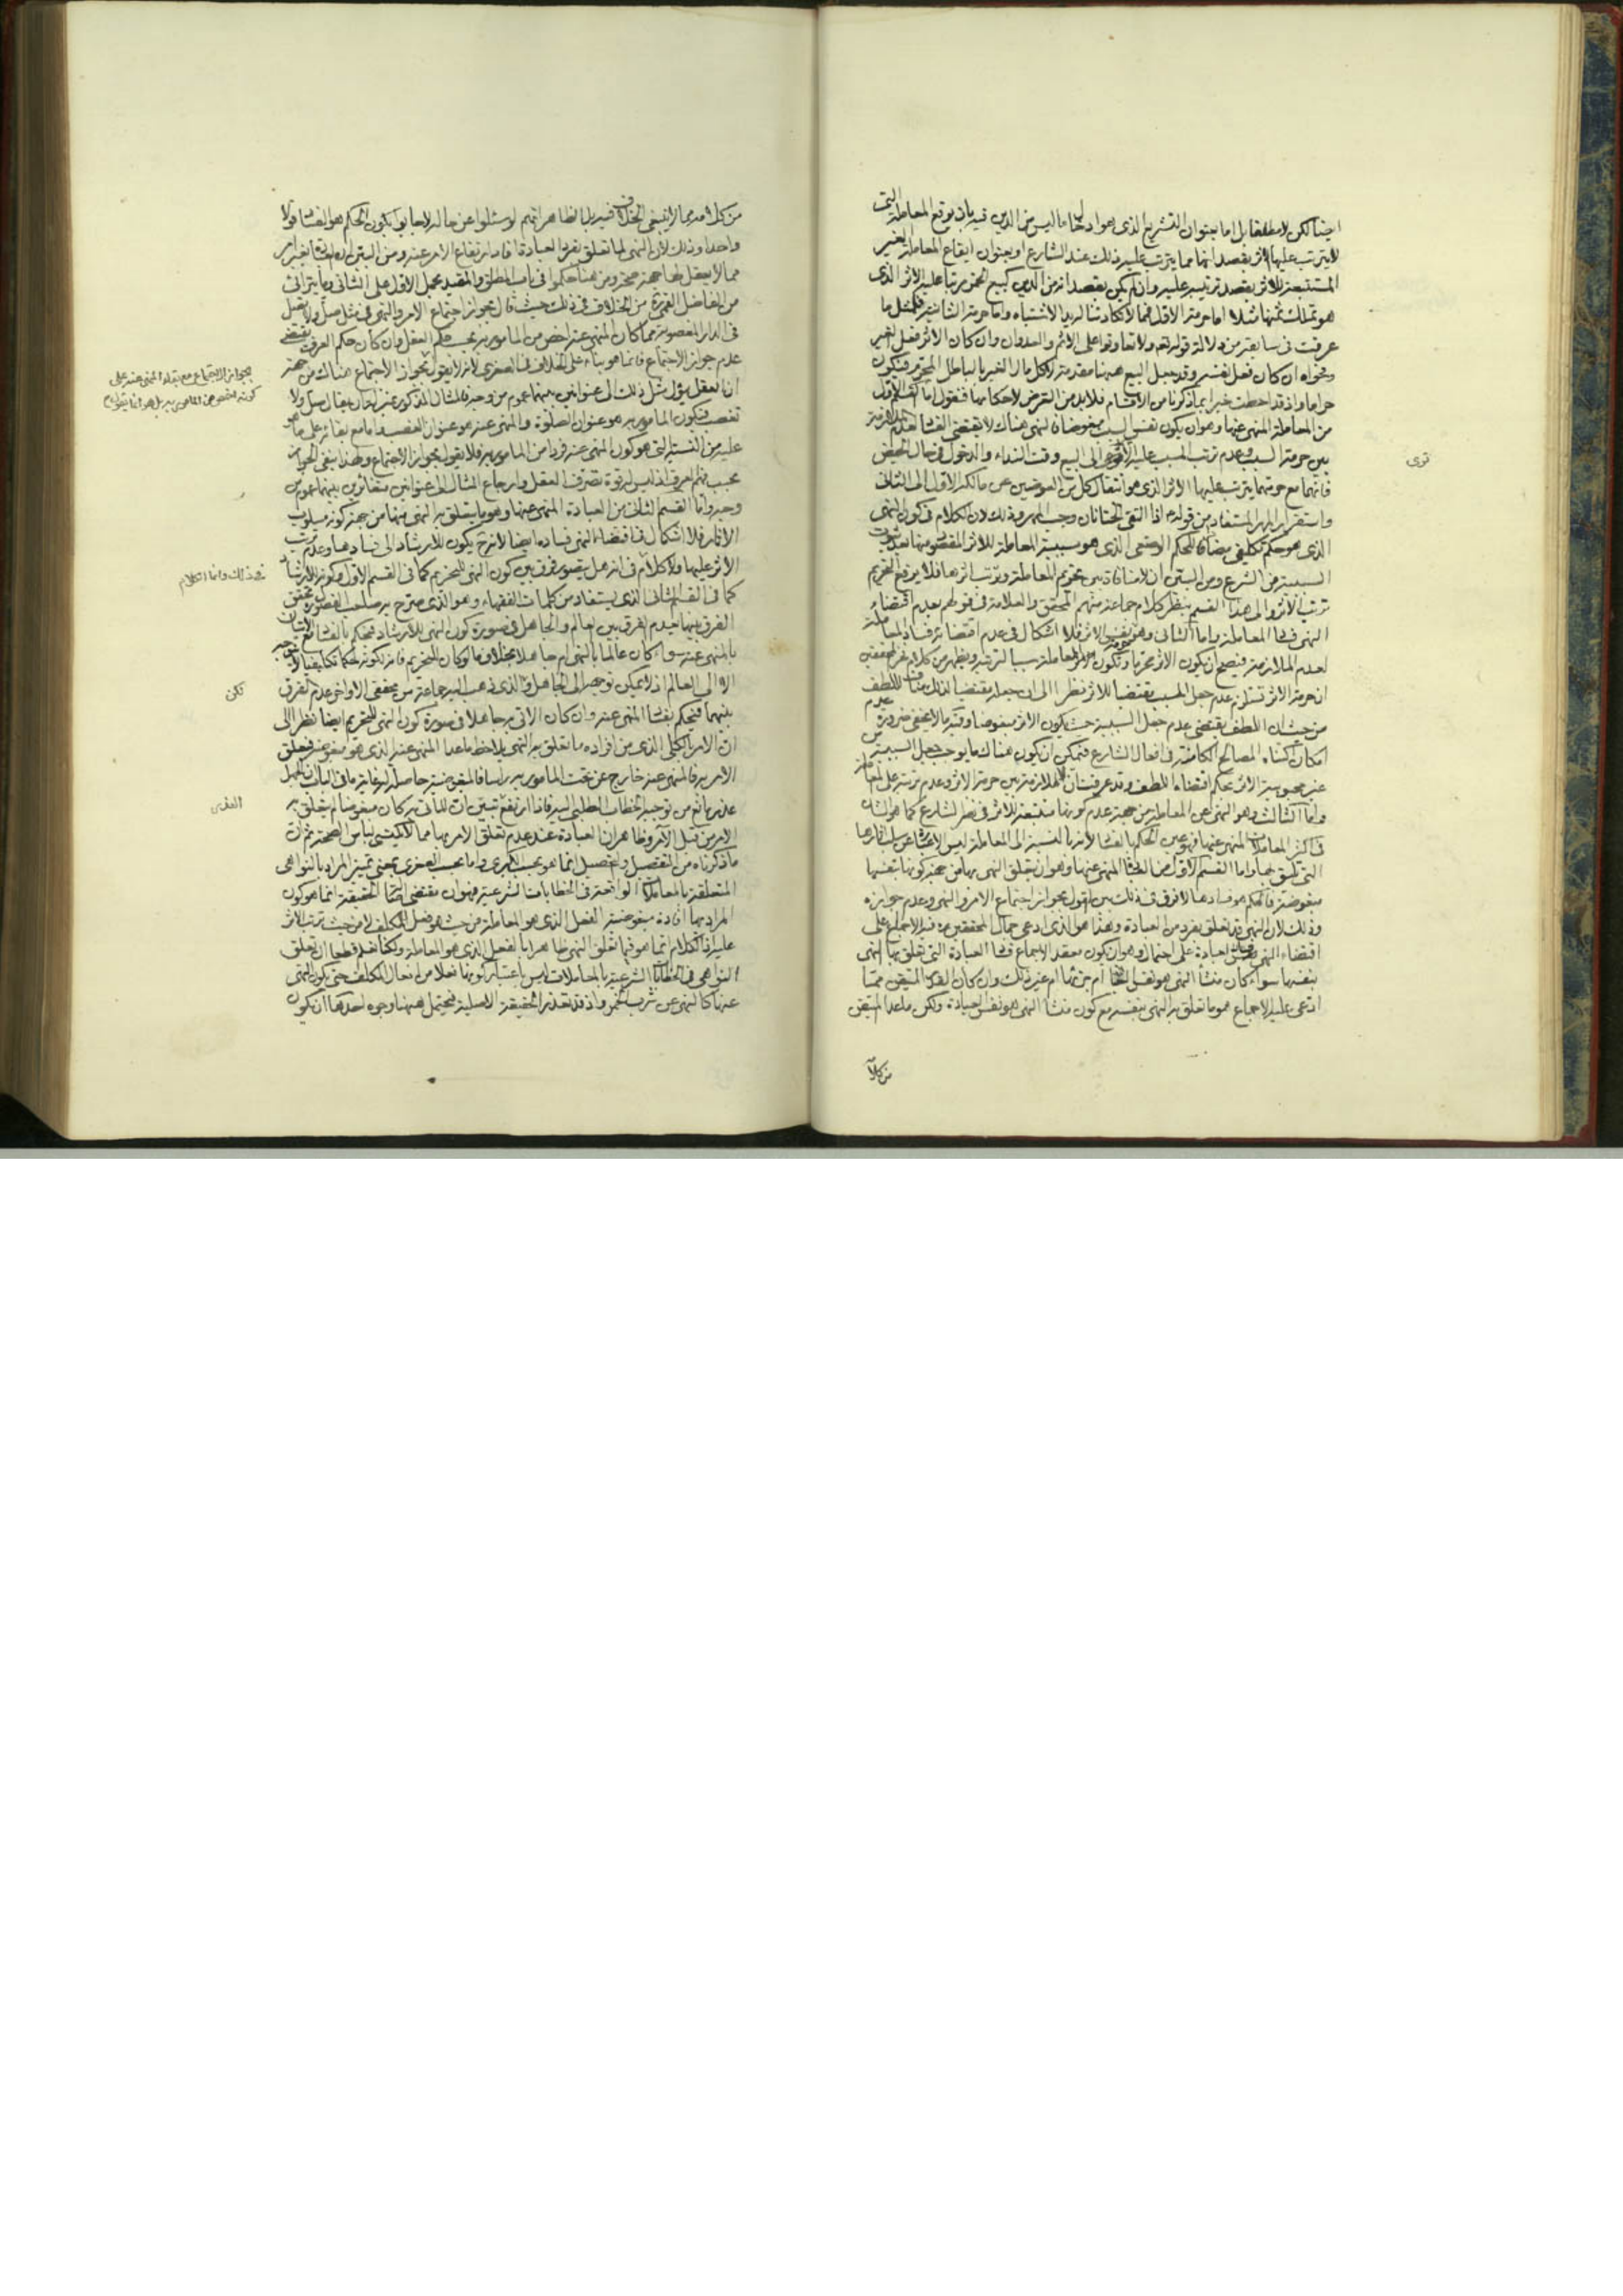 ايضا لكن لا مطلقا بل اما بعنوان التشريع الذى هو ادخال ما ليس من الدين فيه بان يوقع المعاملة التى
لا يترتب عليها الاثر بقصد انها مما يترتب عليه ذلك عند الشارع او بعنوان ايقاع المعاملة الغير
المستتبعة للاثر بقصد ترتبه عليه وان لم يكن بقصد انه من الدين كبيع الخمر مرتبا عليه الاثر الذى
هو تملك ثمنها مثلا اما حرمة الاول فمما لا يكاد يتنا له يد الاشتباه واما حرمة الثانية فلمثل ما
عرفت فى سابقه من دلالة قوله تعم ولا تعاونوا على الاثم والعدوان وان كان الاثر فعل الغير
ونحواه ان كان فعل نفسه وقد جعل البيع ههنا مقدمة لاكل مال الغير بالباطل المحرم فيكون
حراما واذ قد احطت خبرا بما ذكرنا من الاقسام فلا بد من التعرض لاحكامها فنقول اما القسم الاول
من المعاملة المنهى عنها وهو ان يكون نفس السبب مبغوضا فالنهى هناك لا يقتضى الفساد لعدم الملازمة
بين حرمة السبب وعدم ترتب المسبب عليه الا ترى الى البيع وقت النداء والدخول فى حال الحيض
فانهما مع حرمتهما يترتب عليها الاثر الذى هو انتقال كل من العوضين عن مالكه الاول الى الثانى
واستقرار المهر المستفاد من قوله ع اذا التقى الختانان وجب المهر وذلك لان الكلام فى كون النهى
الذى هو حكم تكليفى مضادا للحكم الوضعى الذى هو سببية المعاملة للاثر المقصود منها بعد ثبوت
السببية من الشرع ومن البين ان لا منافاة بين تحريم المعاملة وترتب اثرها فلا يرفع التحريم
ترتب الاثر والى هذا القسم ينظر كلام جماعة منهم المحقق والعلامة فى قولهم بعدم اقتضاء
النهى فى المعاملة واما الثانى وهو تعلقه بالاثر فلا اشكال فى عدم اقتضائه فساد المعاملة
لعدم الملازمة فيصح ان يكون الاثر محرما وتكون المعاملة سببا لترتبه ويظهر من كلام فخر المحققين
ان حرمة الاثر تستلزم عدم جعل المسبب مقتضيا للاثر نظرا الى ان جعله مقتضيا لذلك مناف للطف
من حيث ان اللطف يقتضى عدم جعل السببية حيث يكون الاثر مبغوضا وفيه ما لا يخفى ضرورة عدم
امكان اكتناه المصالح الكامنة فى افعال الشارع فيمكن ان يكون هناك ما يوجب جعل السببية
عنه مبغوضية الاثر بحكم اقتضاء اللطف وقد عرفت ان لا ملازمة بين حرمة الاثر وعدم ترتبه على المعاملة
واما الثالث وهو النهى عن المعاملة من جهة عدم كونها مستتبعة للاثر فى نظر الشارع كما هو الشأن
فى اكثر المعاملات المنهى عنها فيتعين الحكم بالفساد لانه بالنسبة الى المعاملة ليس الا عبارة عن سلب اثارها
التى تليق بها واما القسم الاول من العبادات المنهى عنها وهو ان يتعلق النهى بها من جهة كونها بنفسها
مبغوضة فالحكم هو فسادها لا فرق فى ذلك بين القول بجواز اجتماع الامر والنهى وعدم جوازه
وذلك لان النهى قد تعلق بفرد من العبادة وهذا هو الذى ادعى جمال المحققين ره فيه الاجماع على
اقتضاء النهى فساد العبادة على احتمال وهو ان يكون معقد الاجماع فساد العبادة التى تعلق بها النهى
بنفسها سواء كان منشأ النهى هو نفس العبادة ام جزئها ام غير ذلك وان كان القدر المتيقن مما
ادعى عليه الاجماع هو ما تعلق به النهى بنفسه مع كون منشأ النهى هو نفس العبادة ولكن ما عدا المتيقن
ترى
من كلامه
من كلامه مما لا ينبغى الخلاف فيه بل الظاهر انهم لو سئلوا عن حاله لاجابوا بكون الحكم هو الفساد قولا
واحدا وذلك لان النهى لما تعلق بفرد العبادة افاد ارتفاع الامر عنه ومن البين ان العبادة بغير امر
مما لا يعقل لها صحة ومن هنا حكموا فى باب المطلق والمقيد بحمل الاول على الثانى وما يترائى
من الفاضل القمى ره من الخلاف فى ذلك حيث قال بجواز اجتماع الامر والنهى فى مثل صل ولا تصل
فى الدار المغصوبة مما كان المنهى عنه اخص من المامور به بحسب حكم العقل وان كان حكم العرف يقتضى
عدم جواز الاجتماع فانما هو بناء على الخلاف فى الصغرى لانه لا يقول بجواز الاجتماع هناك من جهة
ان العقل يؤل مثل ذلك الى عنوانين بينهما عموم من وجه فالمثال المذكور عنده كان يقال صل ولا
تغصب فيكون المامور به هو عنوان الصلوة والمنهى عنه هو عنوان الغصب واما مع بقائه على ما هو
عليه من النسبة التى هو كون المنهى عنه فردا من المامور به فلا يقول بجواز الاجتماع ولهذا ينفى الجواز
بحسب فهم العرف اذ ليس له قوة تصرف العقل وارجاع المثال الى عنوانين متغائرين بينهما عموم من
وجه واما القسم الثانى من العبادة المنهى عنها وهو ما يتعلق به النهى منها من جهة كونه مسلوب
الاثار فلا اشكال فى اقتضاء النهى فساده ايضا لانه ح يكون للارشاد الى فسادها وعدم ترتب
الاثر عليها ولا كلام فى انه هل يتصور فرق بين كون النهى للتحريم كما فى القسم الاول وكونه للارشاد
كما فى القسم الثانى الذى يستفاد من كلمات الفقهاء وهو الذى صرح به صاحب الفصول تحقق
الفرق بينهما بعدم الفرق بين العالم والجاهل فى صورة كون النهى للارشاد فيحكم بالفساد مع الاتيان
بالمنهى عنه سواء كان عالما بالنهى ام جاهلا بخلاف ما لو كان للتحريم فانه لكونه حكما تكليفيا لا يتوجه
الا الى العالم اذ لا يمكن توجهه الى الجاهل والذى ذهب اليه جماعة من محققى الاواخر عدم الفرق
بينهما فيحكم بفساد المنهى عنه وان كان الاتى به جاهلا فى صورة كون النهى للتحريم ايضا نظرا الى
ان الامر بالكلى الذى من افراده ما تعلق به النهى يلاحظ ما عدا المنهى عنه الذى هو مبغوض فيتعلق
الامر به فالمنهى عنه خارج عن تحت المامور به راسا فالمبغوضية حاصلة لغاية ما فى الباب ان الجهل
عذر مانع من توجيه الخطاب الطلبى اليه فاذا ارتفع تبين ان المأتى به كان مبغوضا لم يتعلق به
الامر من قبل الآمر وظاهر ان العبادة عند عدم تعلق الامر بها مما لا يكتسى لباس الصحة ثم ان
ما ذكرناه من التفصيل والتحصيل انما هو بحسب الكبرى واما بحسب الصغرى بمعنى تميز المراد بالنواهى
المتعلقة بالمعاملات الواقعة فى الخطابات الشرعية فهو ان مقتضى اصالة الحقيقة انما هو كون
المراد بها افادة مبغوضية الفعل الذى هو المعاملة من حيث هو فعل المكلف لا من حيث ترتب الاثر
عليه اذ الكلام انما هو فيما تعلق النهى ظاهرا بالفعل الذى هو المعاملة ولكنا نعلم قطعا ان تعلق
النواهى فى الخطابات الشرعية بالمعاملات ليس باعتبار كونها فعلا من افعال المكلف حتى يكون النهى
عنها كالنهى عن شرب الخمر واذ قد تعذر الحقيقة الاصلية فيحتمل ههنا وجوه احدها ان يكون
بجواز الاجتماع مع بقاء المنهى عنه على
كونه اخص من المامور به بل هو انما يقول
فى ذلك وانما الكلام
لكن